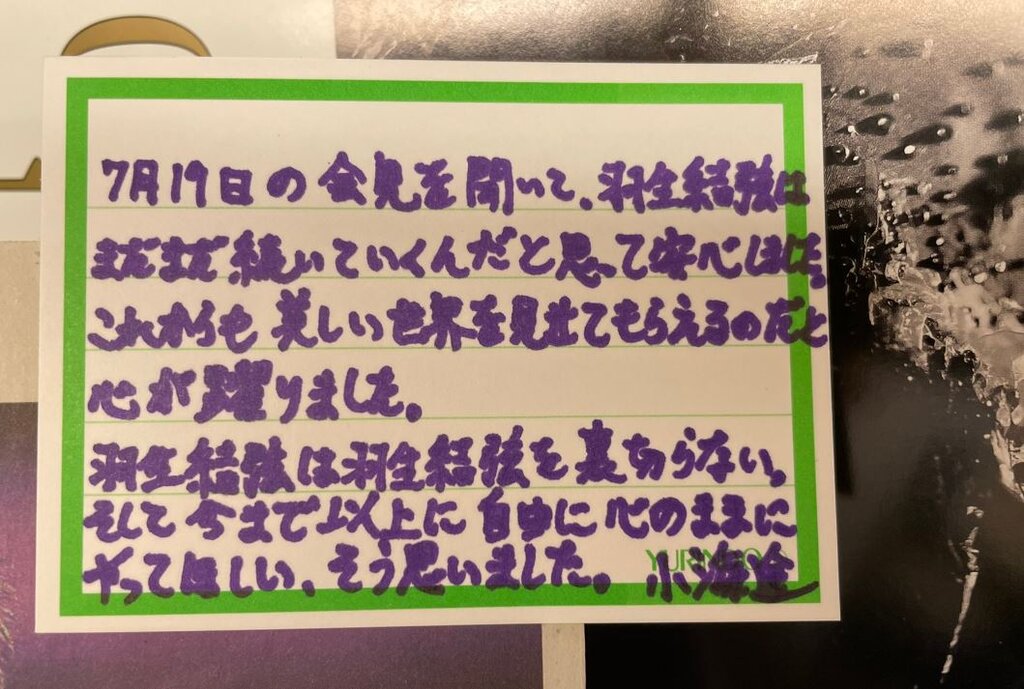 7月19日の会見を聞いて、羽生結弦は
まだまだ続いていくんだと思って安心した。
これからも美しい世界を見せてもらえるのだと
心が躍りました。
羽生結弦は羽生結弦を裏切らない。
そして今まで以上に自由に心のままに
やってほしい、そう思いました。 小海途